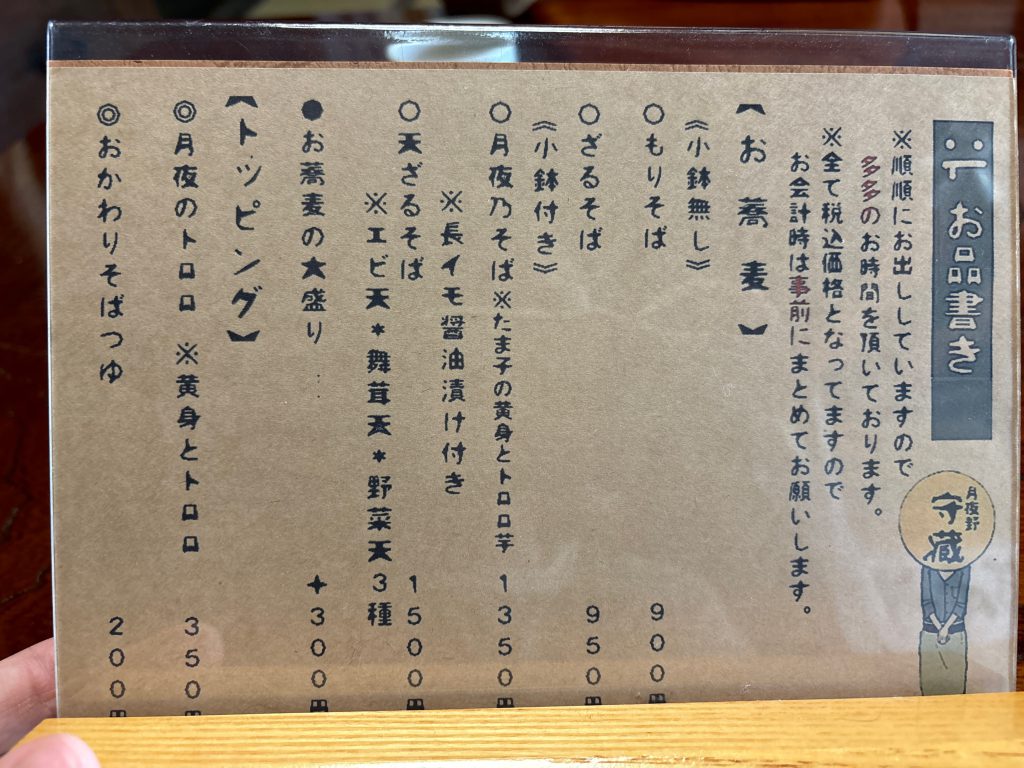 お品書き
月夜野
守蔵
※順順にお出ししていますので
多多のお時間を頂いております。
※全て税込価格となってますので
お会計時は事前にまとめてお願いします。
【お蕎麦】
《小鉢無し》
○もりそば 900円
○ざるそば 950円
《小鉢付き》
○月夜乃そば※たま子の黄身とトロロ芋 1350円
※長イモ醤油漬け付き
○天ざるそば 1500円
※エビ天*舞茸天*野菜天3種
●お蕎麦の大盛り +300円
【トッピング】
◎月夜のトロロ ※黄身とトロロ 350円
◎おかわりそばつゆ 200円